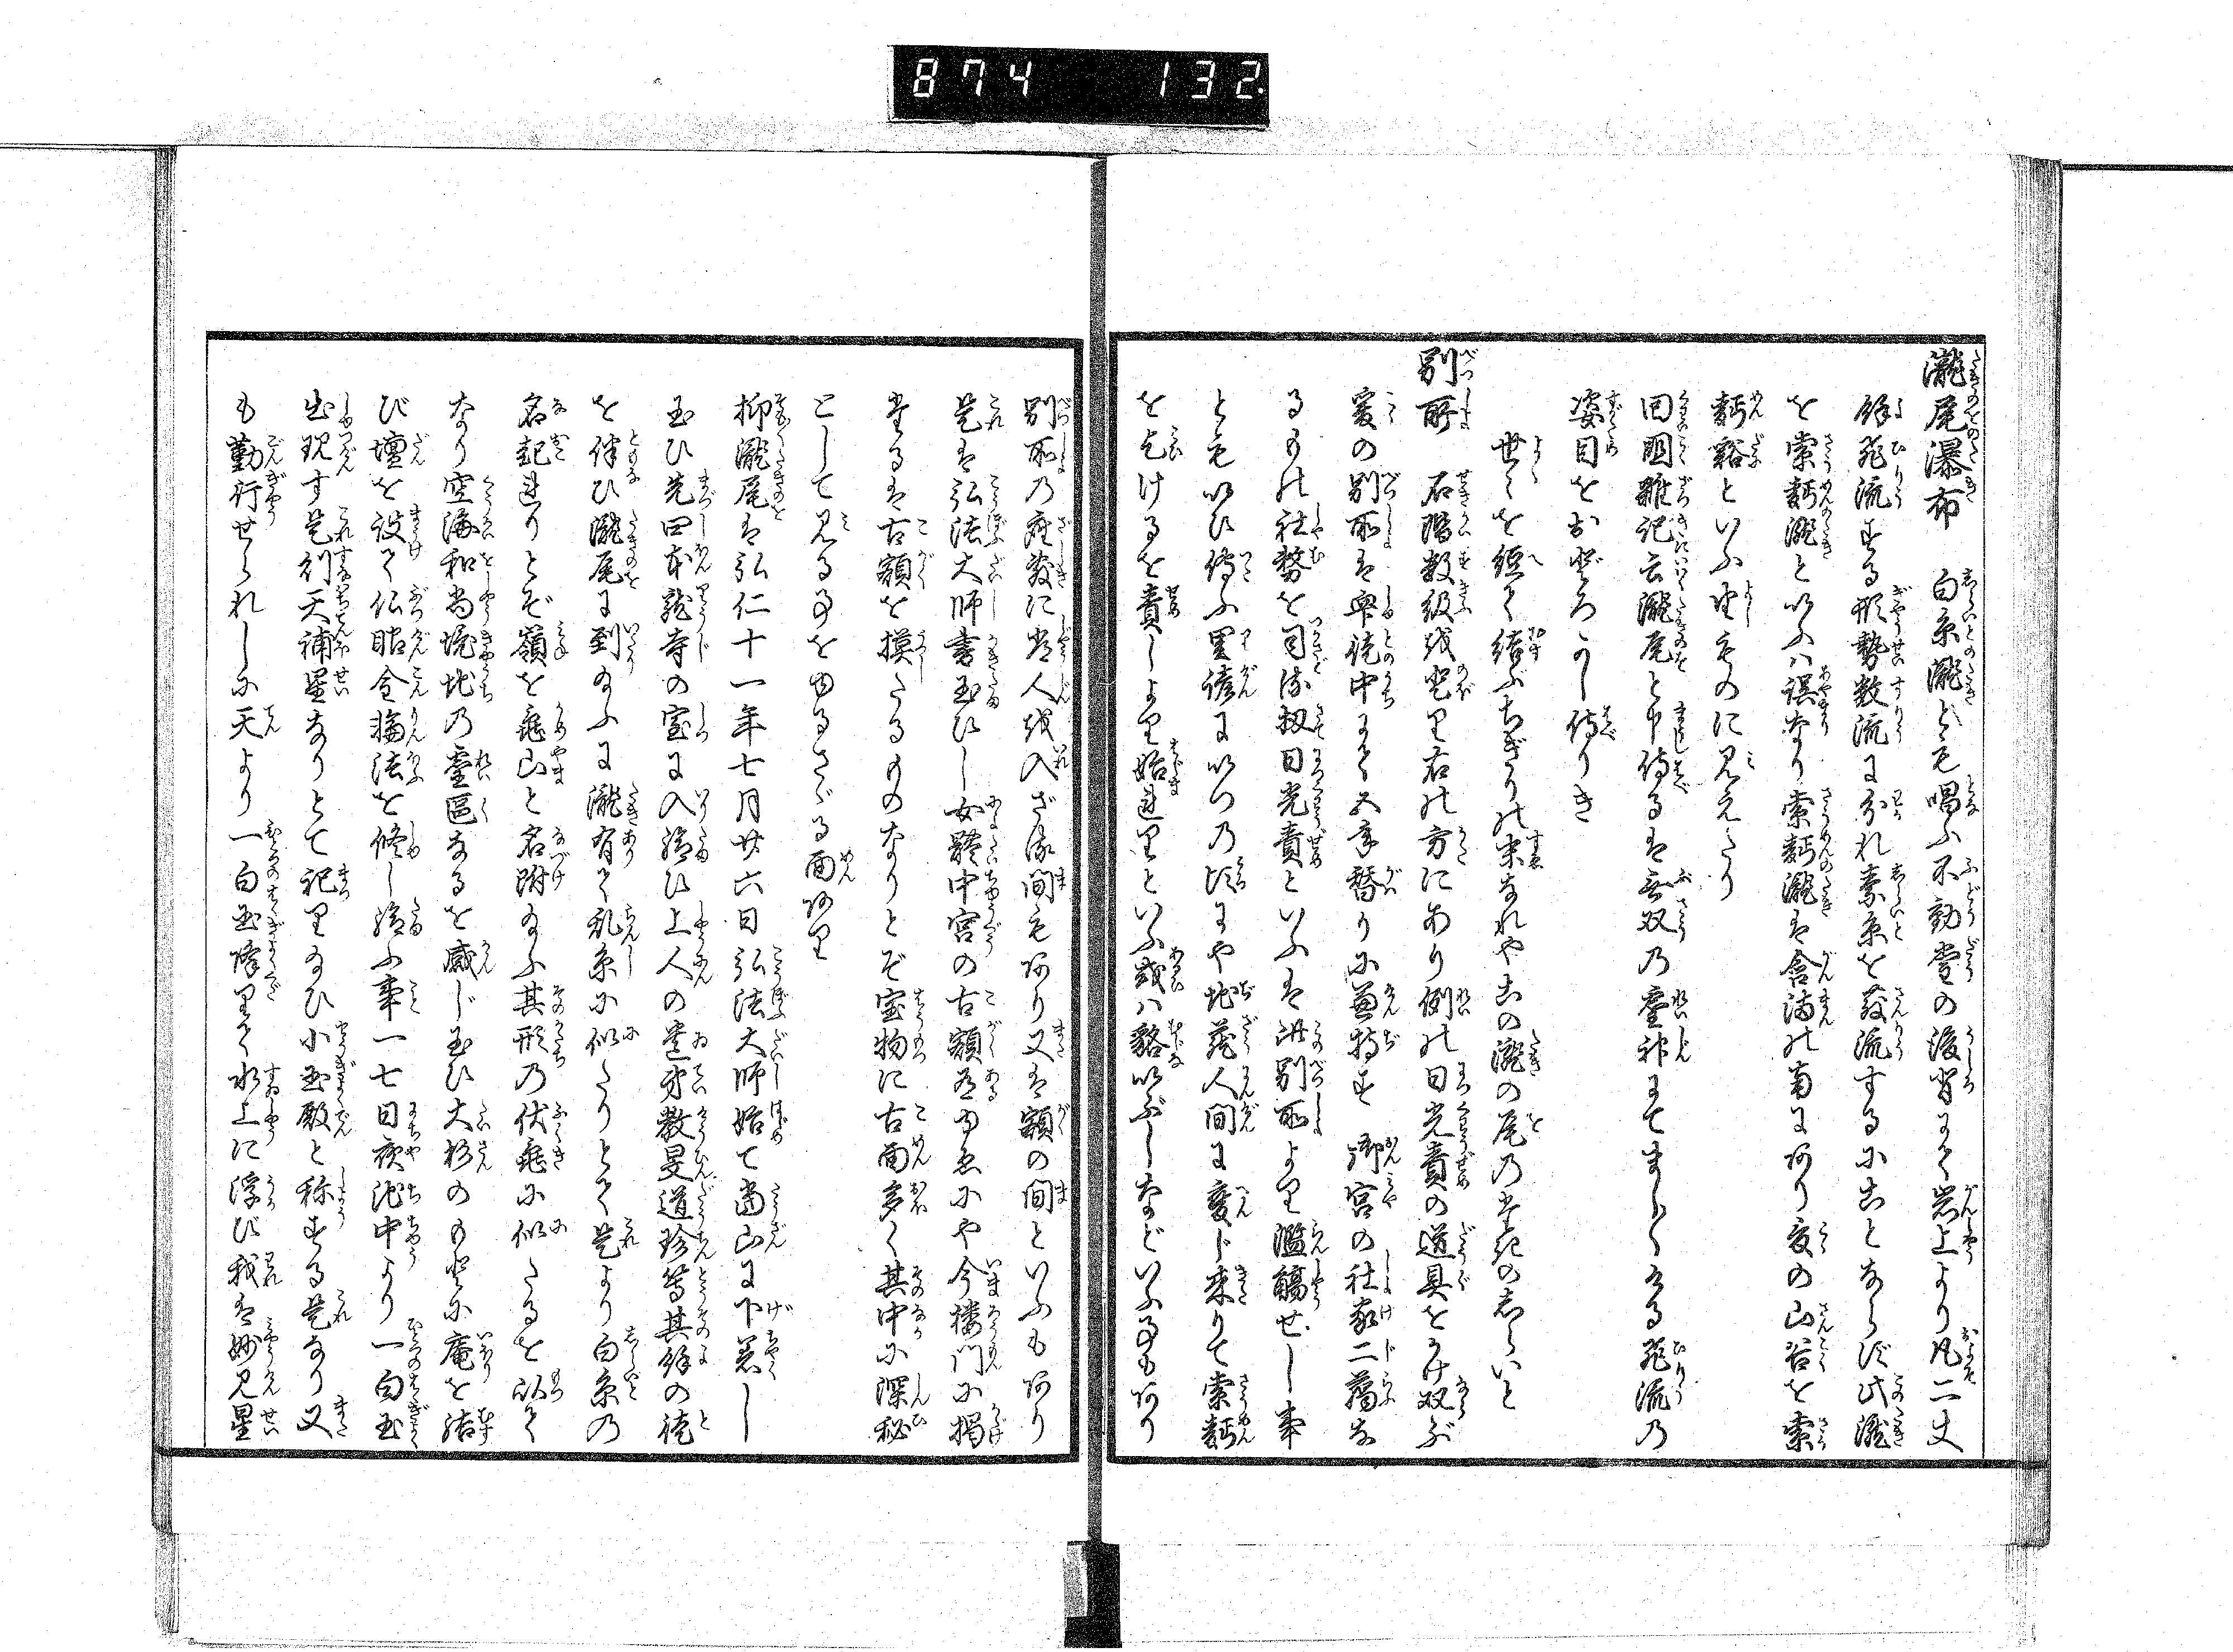 874 132
瀧尾瀑布 白糸瀧とも唱ふ不動堂の後背にて岩上より凡二丈
餘飛流する形勢数流に分れ素糸を散流するに似ことならず此瀧
を索麪瀧と以ふハ誤なり索麪瀧は含満の南にあり爰の山谷を索
麪谿といふ由ものに見えたり
回國雑記云瀧尾と申侍るは無双の霊神にてましましける飛流の
姿目をおどろかし侍りき
世々を経て結ぶちぎりの末なれやこの瀧の尾の瀧のしらいと
別所 石階数級を登り右の方にあり例の日光責の道具をかけ双ぶ
爰の別所は衆徒中にて五年替りに兼持す 御宮の社家二﨟な
るもの社務を司る扨日光責といふは此別所より濫觴せし事
とも以ひ傳ふ里諺に以つの頃にや地蔵人間に変じ来りて索麪
を乞けるを責しより始まれりといふ或ハ貉以ぶしなどいふ事もあり
別所の座敷に常人を入ざる間もあり又は額の間といふもあり
是は弘法大師書玉ひし女體中宮の古額ある由ゑにや今楼門に掲
たるは古額を摸したるものなりとぞ宝物に古面多く其中に深秘
として見る事をゆるさゞる面あり
抑瀧尾は弘仁十一年七月廿六日弘法大師始て當山に下着し
玉ひ先四本龍寺の室に入給ひ上人の遺弟教旻道珍等其餘の徒
を伴ひ瀧尾に到給ふに瀧有て乱糸に似たりとて是より白糸の
名起れりとぞ嶺を亀山と名附給ふ其形の伏亀に似たるを以て
なり空海和尚境地の霊區なるを感じ玉ひ大杉のもとに庵を結
び壇を設て仏眼金輪法を修し給ふ事一七日夜池中より一白玉
出現す是則天補星なりとて祀り給ひ小玉殿と称する是なり又
も勤行せられしに天より一白玉降りて水上に浮び我は妙見星